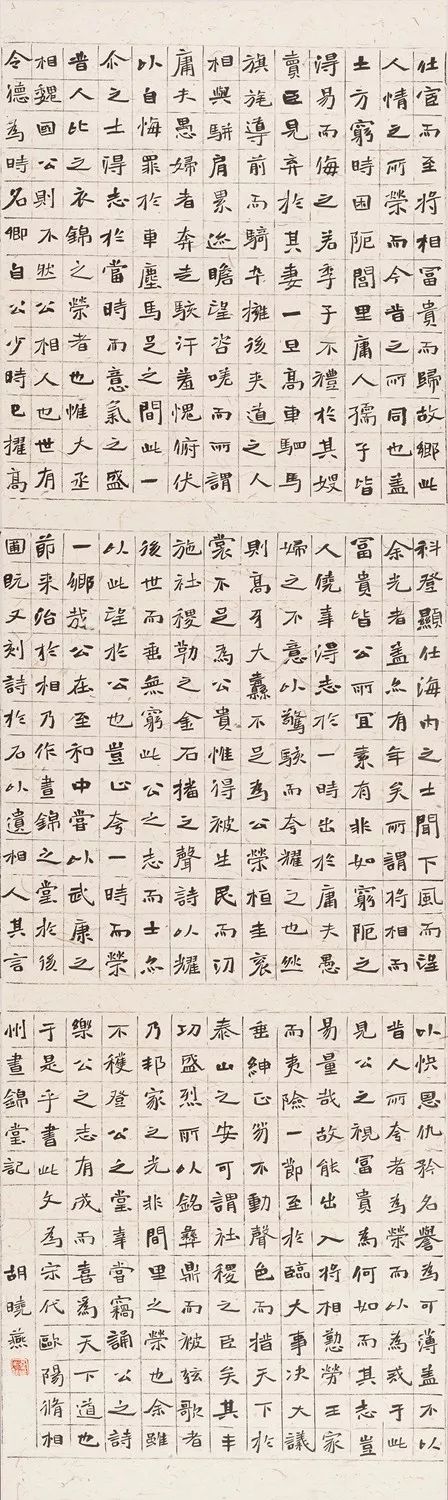 仕宦而至將相富貴而歸故鄉此
人情之所榮而今昔之所同也蓋
士方窮時困阨閭里庸人孺子皆
得易而侮之若季子不禮於其嫂
買臣見弃於其妻一旦高車駟馬
旗旄導前而騎卒擁後夾道之人
相與駢肩累迹瞻望咨嗟而所謂
庸夫愚婦者奔走駭汗羞愧俯伏
以自悔罪於車塵馬足之間此一
介之士得志於當時而意氣之盛
昔人比之衣錦之榮者也惟大丞
相魏國公則不然公相人也世有
令德為時名卿自公少時已擢高
科登顯仕海内之士聞下風而望
余光者蓋亦有年矣所謂將相而
富貴皆公所宜素有非如窮阨之
人僥幸得志於一時出於庸夫愚
婦之不意以驚駭而夸耀之也然
則高牙大纛不足為公榮桓圭衮
裳不足為公貴惟得被生民而功
施社稷勒之金石播之聲詩以耀
後世而垂無窮此公之志而士亦
以此望於公也豈止夸一時而榮
一鄉哉公在至和中嘗以武康之
節来治於相乃作晝錦之堂於後
圃既又刻詩於石以遺相人其言
以快恩仇矜名譽為可薄蓋不以
昔人所夸者為榮而以為戒于此
見公之視富貴為何如而其志豈
易量哉故能出入將相懃勞王家
而夷險一節至於臨大事决大議
垂紳正笏不動聲色而措天下於
泰山之安可謂社稷之臣矣其丰
功盛烈所以銘彝鼎而被弦歌者
乃邦家之光非閭里之榮也余雖
不獲登公之堂幸嘗竊誦公之詩
樂公之志有成而喜為天下道也
于是乎書此文為宗代歐陽脩相
州晝錦堂記 胡曉燕